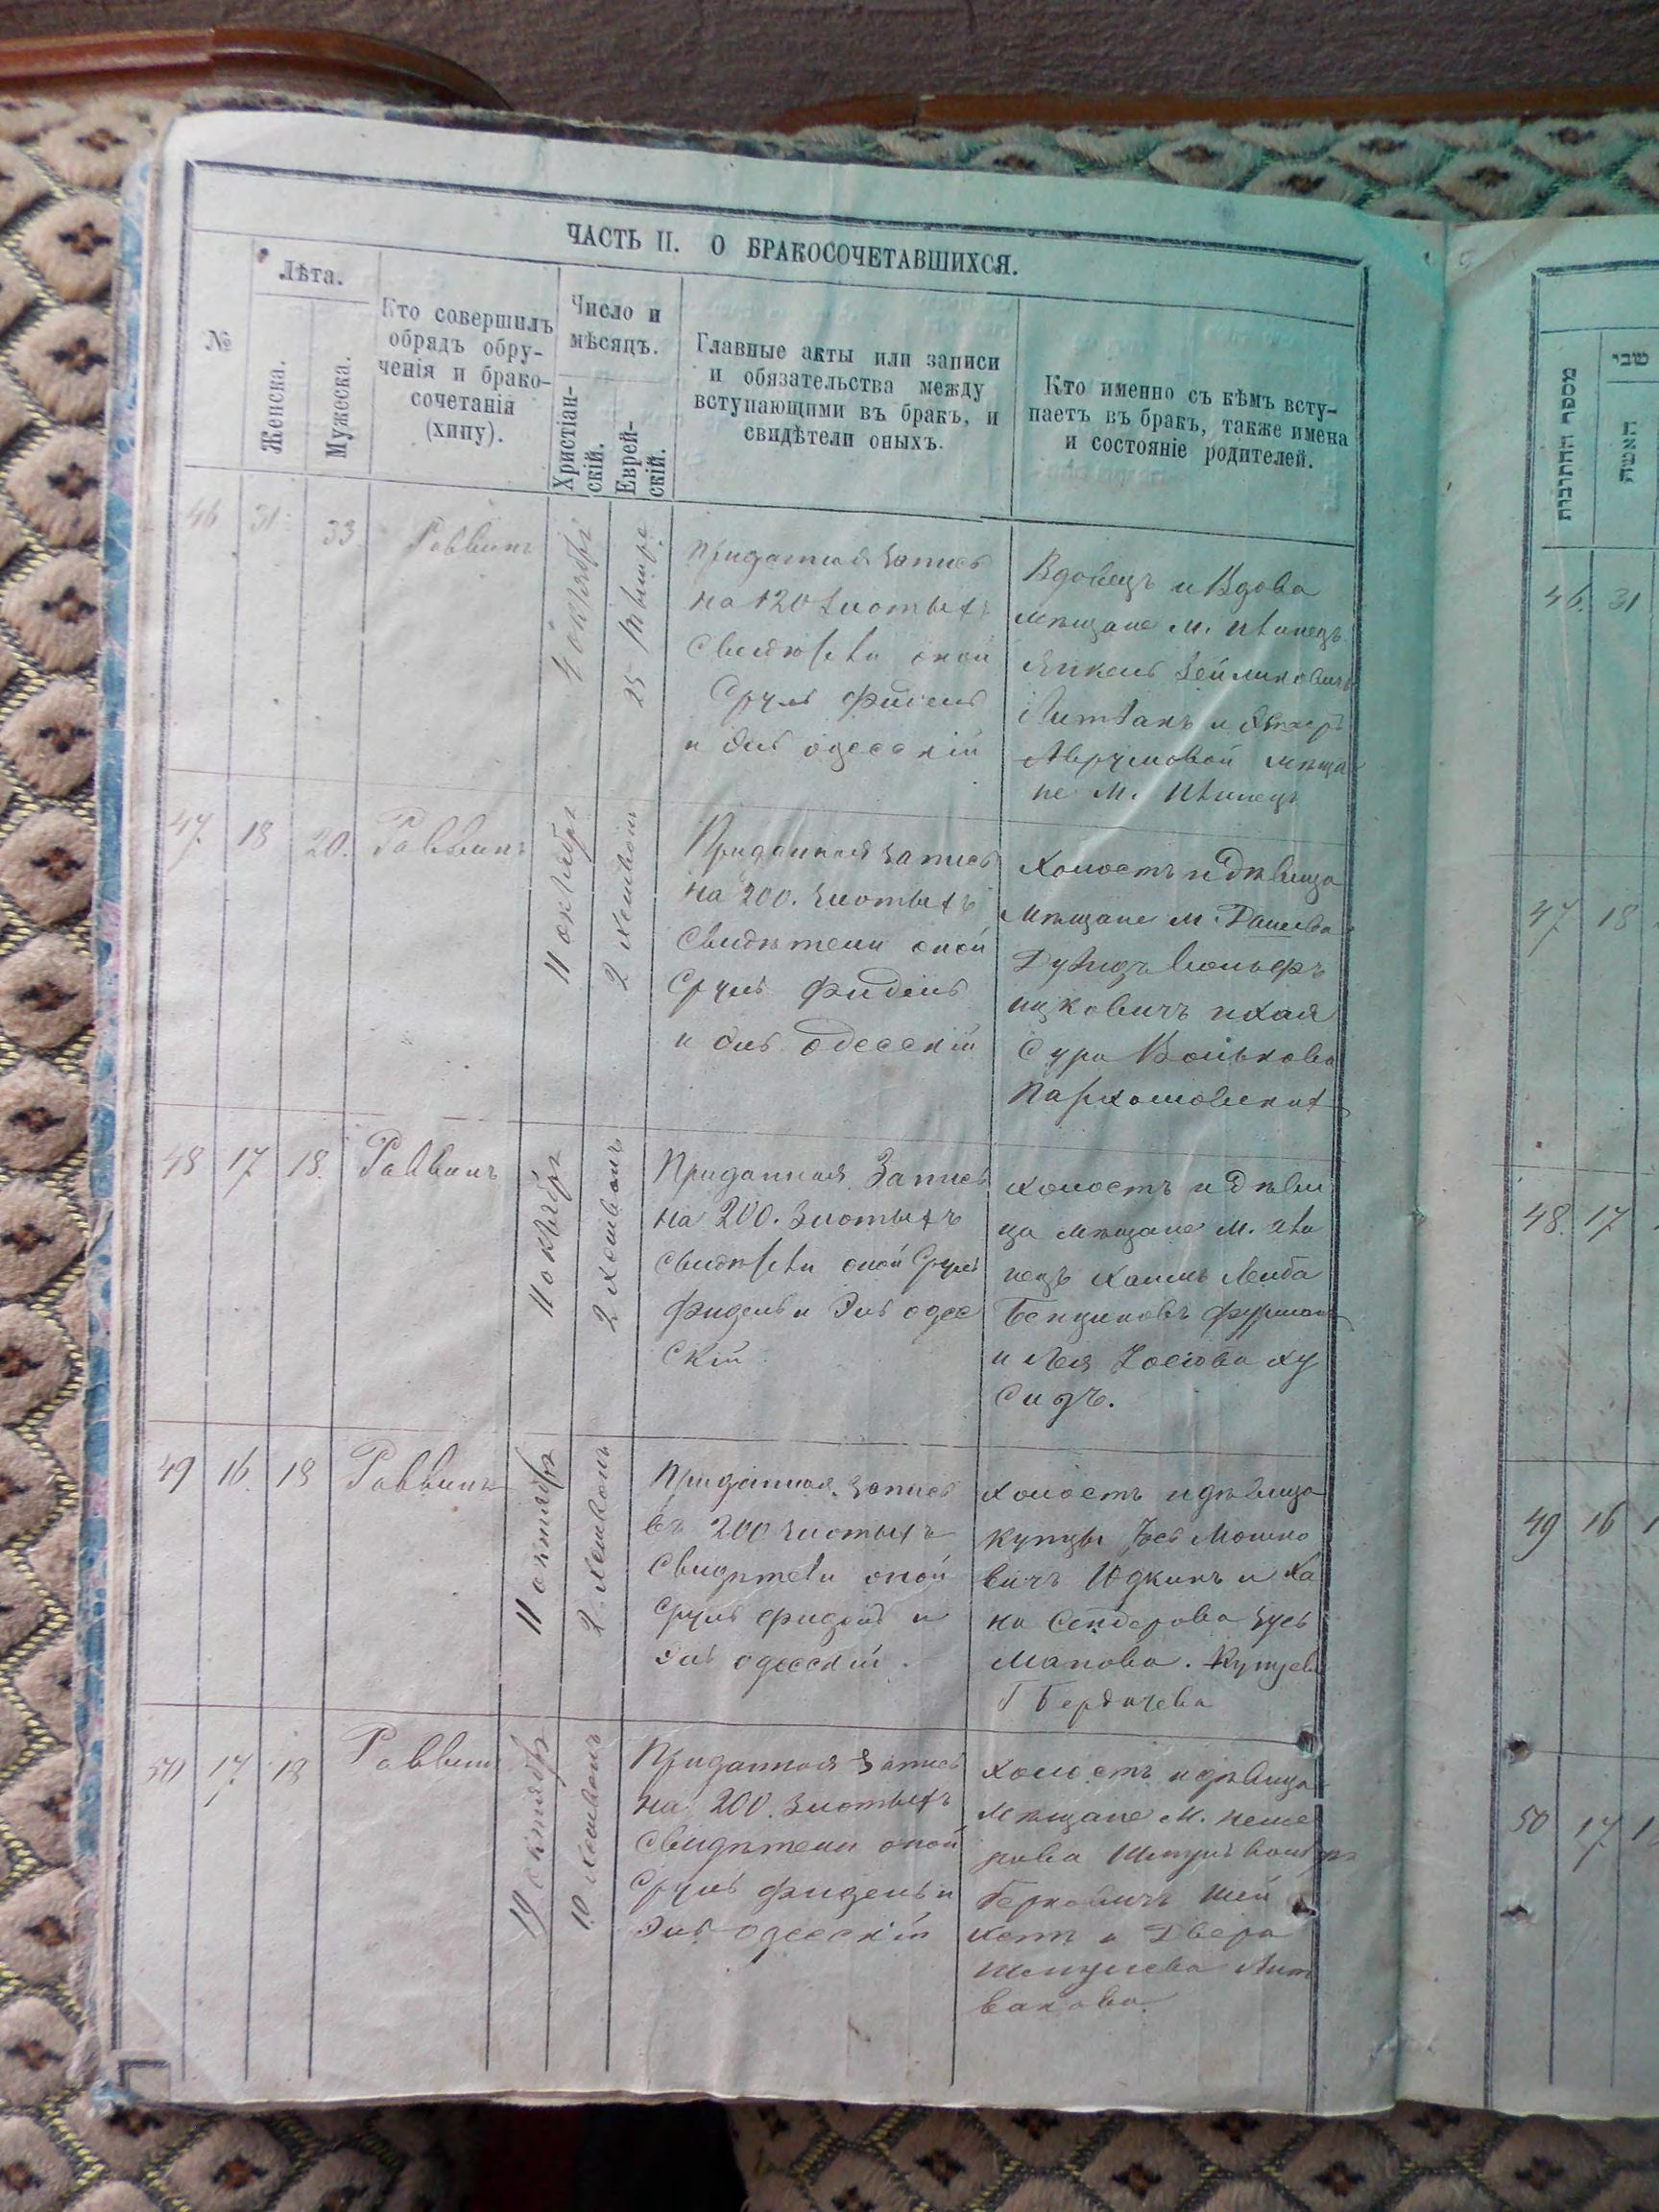 ЧАСТЬ II. О БРАКОСОЧЕТАВШИХСЯ.
№
Лѣта.
Женска.
Мужеска.
Кто совершилъ
обрядъ обру-
ченія и брако-
сочетанія
(хипу).
Число и
мѣсяцъ.
Христіан-
скій.
Еврей-
скій.
Главные акты или записи
и обязательства между
вступающими въ бракъ, и
свидѣтели оныхъ.
Кто именно съ кѣмъ всту-
паетъ въ бракъ, также имена
и состояніе родителей.
46 31 33 Раввинъ
4 октября
25
Приданная Запись
на 120 злотыхъ
Свидѣтели оной
Сруль Фидель
и Эль одесскій
Вдовецъ и Вдова
мѣщане м.
Янкель Зейликовичъ
Литвакъ и
Аврумовой мѣща
не м.
47 18 20. Раввинъ
11 октября
2 Хешвонъ
Приданная Запись
на 200. Злотыхъ
Свидѣтели оной
Сруль Фидель
и Эль Одесскій
Холостъ и дѣвица
Мѣщане м. Дашева
Вольфъ
ицковичъ и Хая
Сура Волькова
48 17 18. Раввинъ
11 октября
2 Хешвонъ
Приданная Запись
на 200. Злотыхъ
Свидѣтели оной Сруль
Фидель и Эль одес
скій
Холостъ и дѣви
ца мѣщане м.
Хаимъ Лейба
Бенціновъ Фурман
и Лея Іосіова Ху
сидъ.
49 16. 18 Раввинъ
11 октября
2 Хешвонъ
Приданная Запись
въ 200 злотыхъ
Свидѣтели оной
Сруль Фидель и
Эль одесскій.
Холостъ и дѣвица
купцы Іось Мошко
вичъ Юдкинъ и Ха
на Сендерова Зусь
манова. Купцевъ
Г Бердичева
50 17 18 Раввинъ
19 октября
10 Хешвонъ
Приданная Запись
на 200. Злотыхъ
Свидѣтели оной
Сруль Фидель и
Эль одесскій
Холостъ и дѣвица
мѣщане м.
Шмуль
Берковичъ
и Двера
Шмулева Лит
вакова.
מספר החתונות
שני
האשה
46. 31
47 18
48. 17
49 16 1
50 17 1